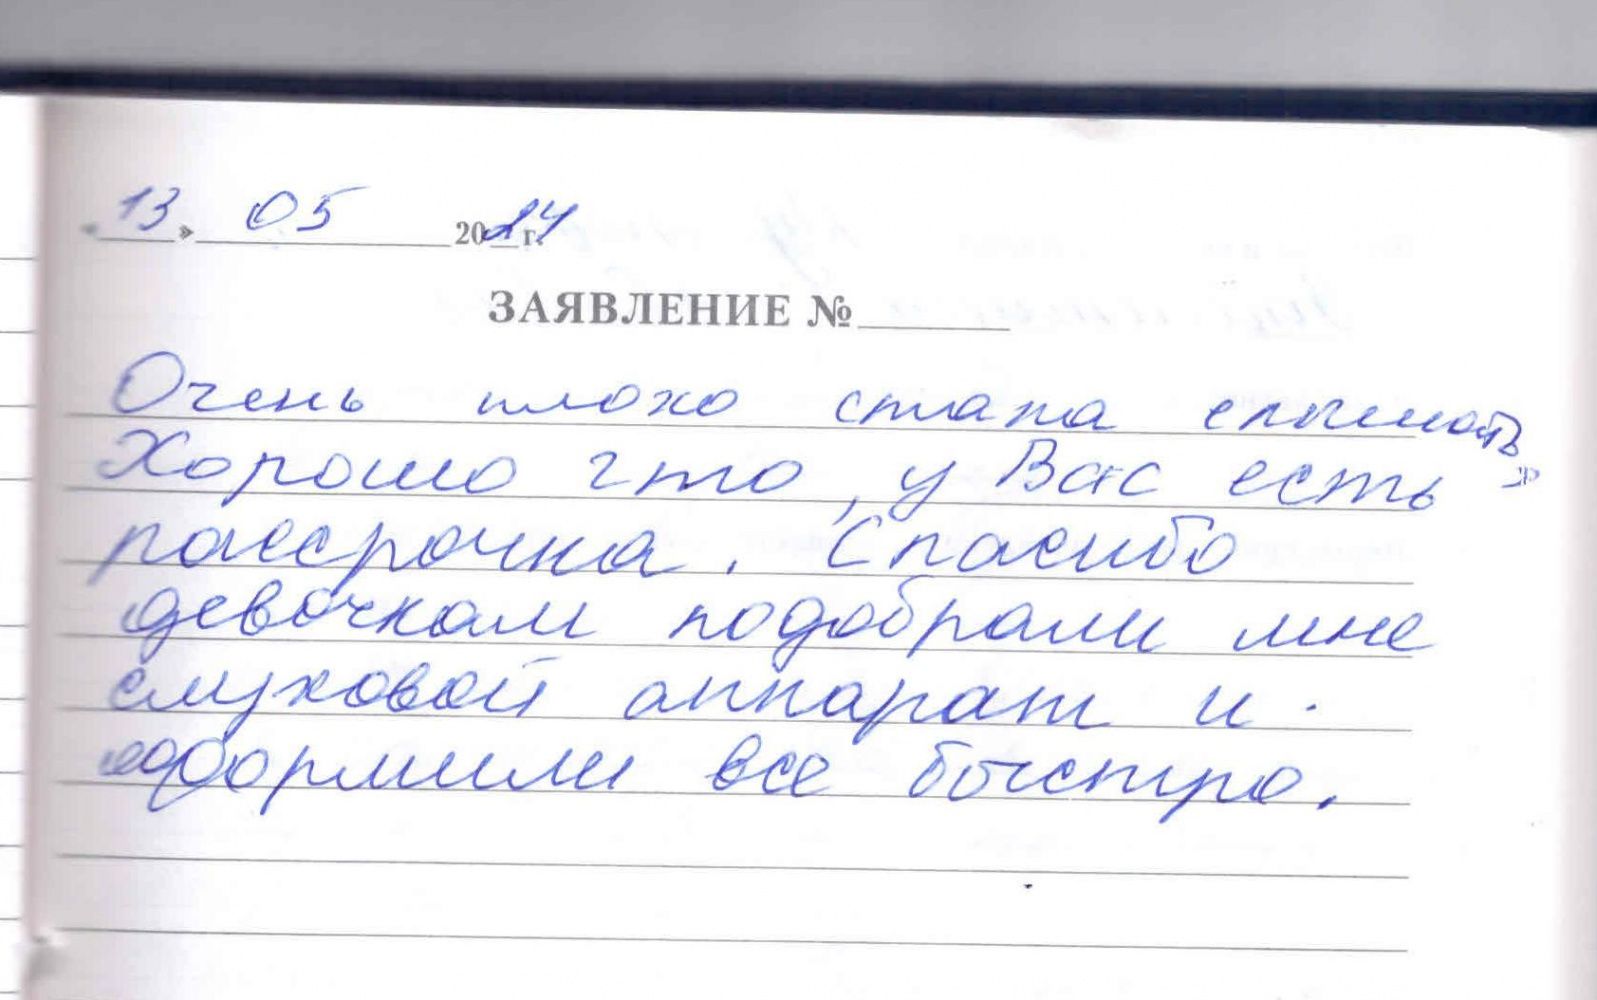 «13» 05 2024 г.
ЗАЯВЛЕНИЕ №
Очень плохо стала слышать
Хорошо что, у Вас есть
рассрочка. Спасибо
девочкам подобрали мне
слуховой аппарат и
оформили все быстро.